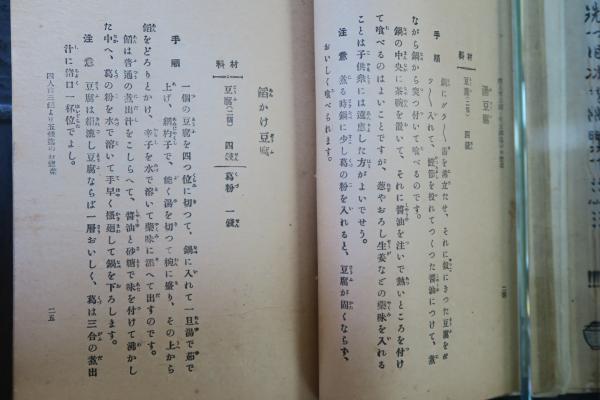 湯豆腐
材料
豆腐(二個) 四錢
手順
鍋にグラ〳〵湯を沸立たせ、それに賽にきつた豆腐をが
ラ〳〵入れて、鰹節を投れてつくつた醬油につけて、煮
ながら鍋から突つ付いて喰べるのです。
鍋の中央に茶碗を置いて、それに醬油を注いで熱いところを付け
て喰べるのはよいことですが、葱やおろし生姜などの藥味を入れる
ことは子供衆には遠慮した方がよいでせう。
注意 煮る時鍋に少し葛の粉を入れると、豆腐が固くならず、
おいしく喰べられます。
餡かけ豆腐
材料
豆腐(二個) 四錢 葛粉 一錢
手順
一個の豆腐を四つ位に切つて、鍋に入れて一旦湯で茹で
上げ、網杓子で、能く湯を切つて椀に盛り、その上から
餡をどろりとかけ、辛子を水で溶いて藥味に添へて出すのです。
餡は普通の煮出汁をこしらへて、醬油と砂糖で味を付けて沸かし
た中へ、葛の粉を水で溶いて手早く搔廻して鍋を下ろします。
注意 豆腐は絹漉し豆腐ならば一層おいしく、葛は三合の煮出
汁に猪口一杯位でよし。
四人前三錢より五錢迄のお惣菜
二五